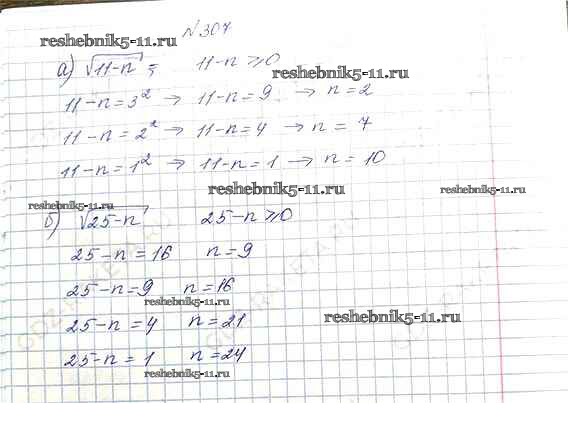 №307
reshebnik5-11.ru
а) √11-n ; 11-n ⩾ 0
reshebnik5-11.ru
11-n = 3² → 11-n = 9 → n = 2
11-n = 2² → 11-n = 4 → n = 7
11-n = 1² → 11-n = 1 → n = 10
reshebnik5-11.ru
reshebnik5-11.ru
reshebnik5-11.ru
б) √25-n 25-n ⩾ 0
25-n = 16 n = 9
25-n = 9 n = 16
reshebnik5-11.ru
25-n = 4 n = 21
reshebnik5-11.ru
25-n = 1 n = 24
reshebnik5-11.ru